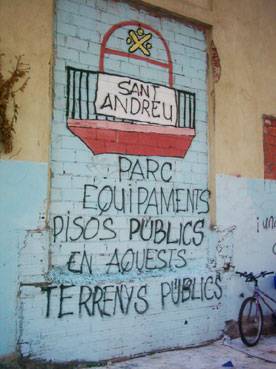 SANT
ANDREU
PARC
EQUIPAMENTS
PISOS PÚBLICS
EN AQUESTS
TERRENYS PÚBLICS